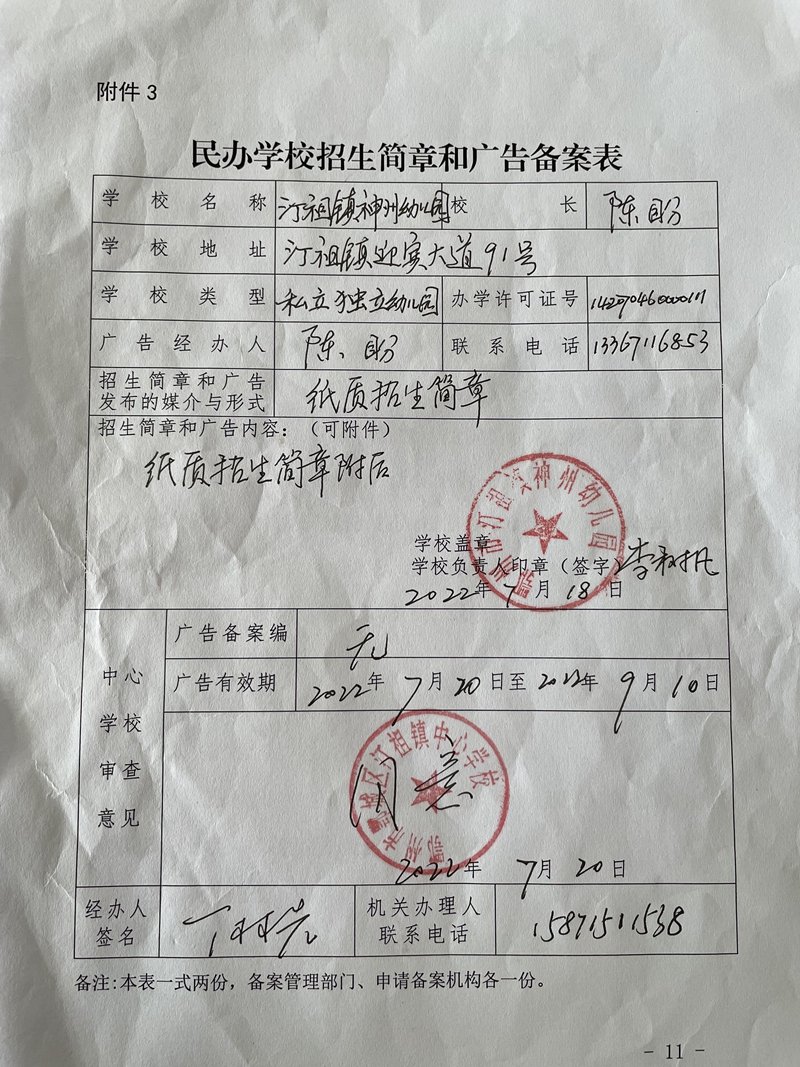 附件 3
民办学校招生简章和广告备案表
学校名称 汀祖镇神州幼儿园 校长 陈盼
学校地址 汀祖镇迎宾大道91号
学校类型 私立独立幼儿园 办学许可证号
广告经办人 陈盼 联系电话 13367116853
招生简章和广告
发布的媒介与形式 纸质招生简章
招生简章和广告内容：（可附件）
纸质招生简章附后
鄂州市汀祖镇神州幼儿园
学校盖章
学校负责人印章（签字）
2022年7月18日
中心学校审查意见
广告备案编 无
广告有效期 2022年7月20日至2022年9月10日
鄂州市鄂城区汀祖镇中心学校
同意
2022年7月20日
经办人
签名
机关办理人
联系电话 15871511538
备注:本表一式两份，备案管理部门、申请备案机构各一份。
- 11 -